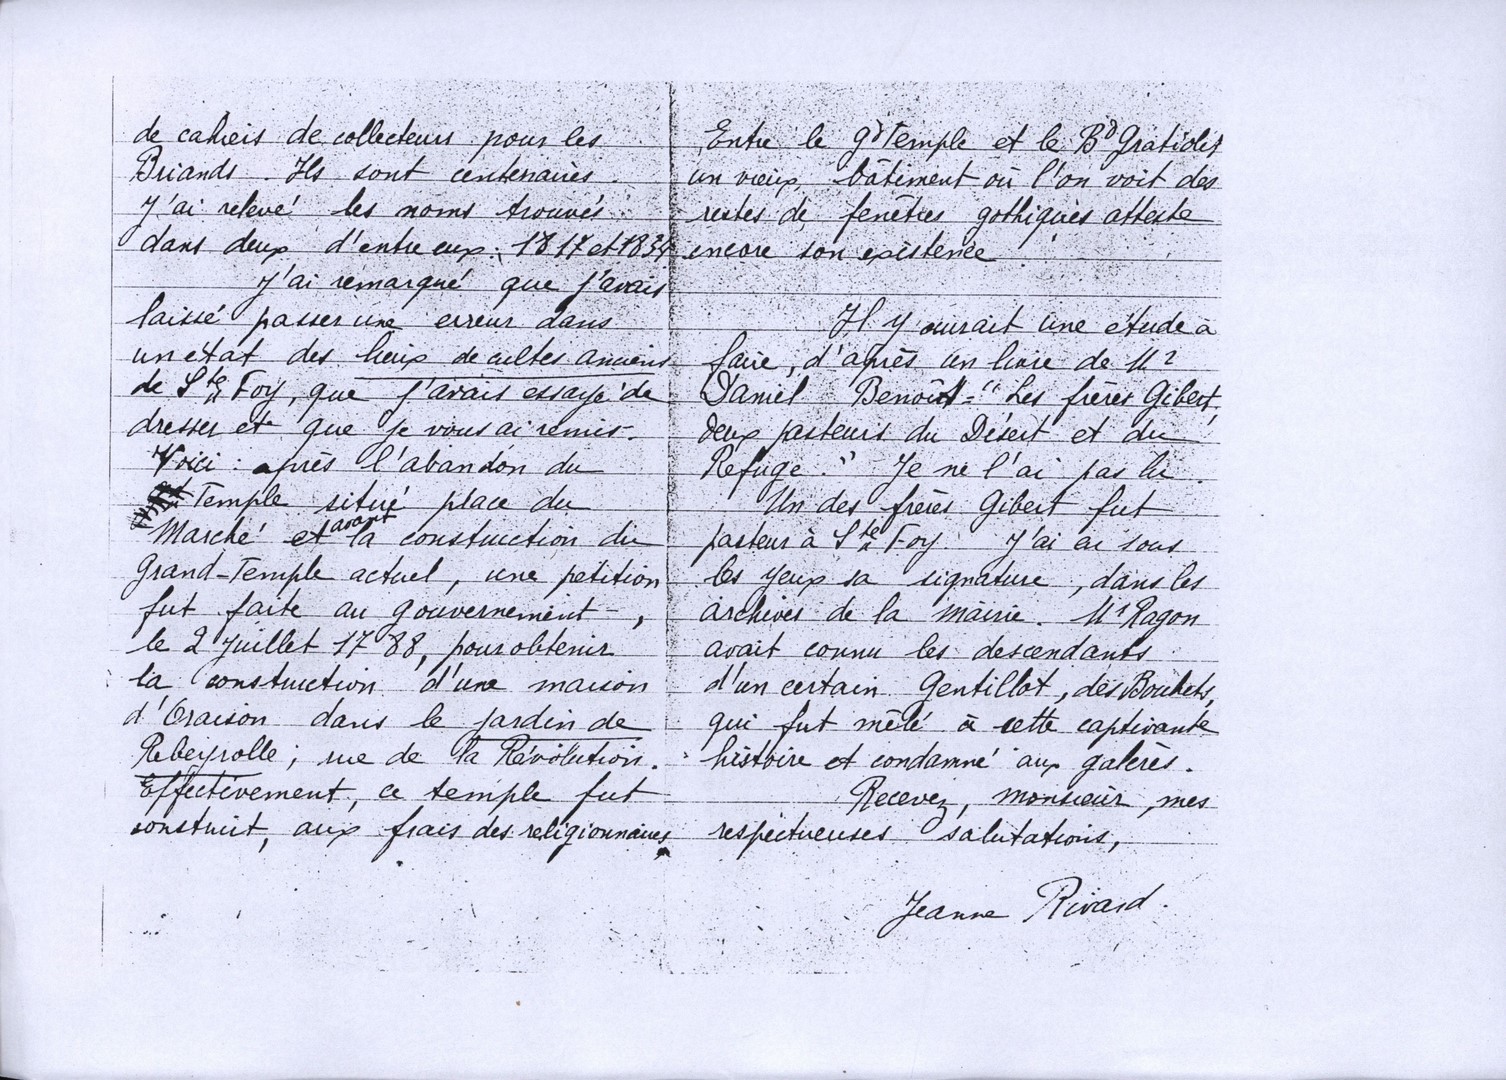 de cahiers de collecteurs pour les
Briands. Ils sont centenaires.
J'ai relevé les noms trouvés
dans deux d'entre eux : 1817 et 1834
J'ai remarqué que j'avais
laissé passer une erreur dans
un état des lieux de cultes anciens
de Ste Foy, que j'avais essayé de
dresser et que je vous ai remis.
Voici : après l'abandon du
Temple situé place du
Marché et avant la construction du
Grand-Temple actuel, une petition
fut faite au gouvernement,
le 2 Juillet 1788, pour obtenir
la construction d'une maison
d'Oraison dans le jardin de
Rebeyrolle ; rue de la Révolution.
Effectivement, ce temple fut
construit, aux frais des religionnaires
Entre le gd Temple et le Bd Gratiolet
un vieux bâtiment où l'on voit des
restes de fenêtres gothiques atteste
encore son existence
Il y aurait une étude à
faire, d'après un livre de Mr
Daniel Benoît = "Les frères Gibert,
deux pasteurs du Désert et du
Refuge." Je ne l'ai pas lu.
Un des frères Gibert fut
pasteur à Ste Foy. J'ai eu sous
les yeux sa signature, dans les
archives de la mairie. Mr Ragon
avait connu les descendants
d'un certain Gentillot, des Bouhets,
qui fut mêlé à cette captivante
histoire et condamné aux galères.
Recevez, monsieur, mes
respectueuses salutations,
Jeanne Rivard.